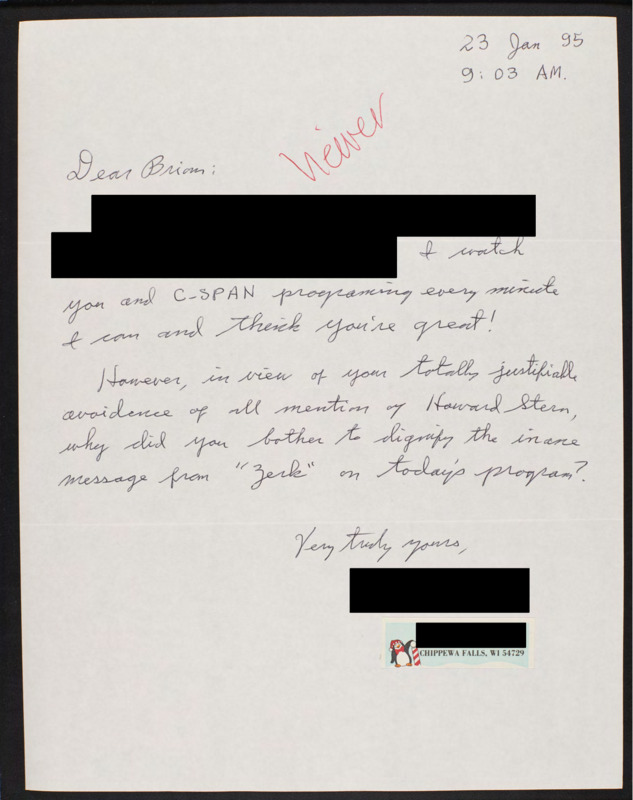 23 Jan 95
9:03 AM.
Viewer
Dear Brian:
I watch
you and C-SPAN programing every minute
I can and think you're great!
However, in view of your totally justifiable
avoidence of all mention of Howard Stern,
why did you bother to dignify the inane
message from "Zerk" on today's program?
Very truly yours,
CHIPPEWA FALLS, WI 54729